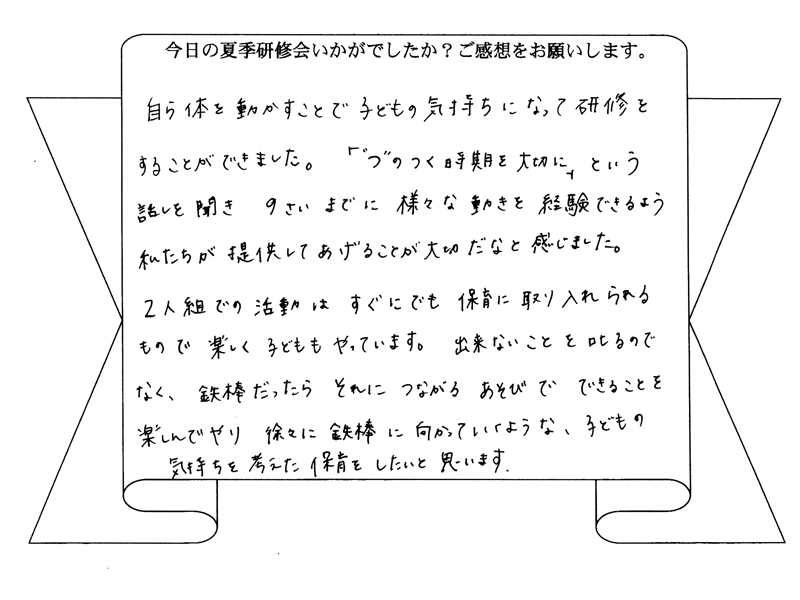 今日の夏季研修会いかがでしたか？ご感想をお願いします。
自ら体を動かすことで子どもの気持ちになって研修を
することができました。「"つ"のつく時期を大切に」という
話しを聞き 9さいまでに様々な動きを経験できるよう
私たちが提供してあげることが大切だなと感じました。
2人組での活動はすぐにでも保育に取り入れられる
もので楽しく子どももやっています。 出来ないことを叱るので
なく、鉄棒だったら それに つながる あそびで できることを
楽しんでやり 徐々に鉄棒に向かっていくような、子どもの
気持ちを考えた保育をしたいと思います.